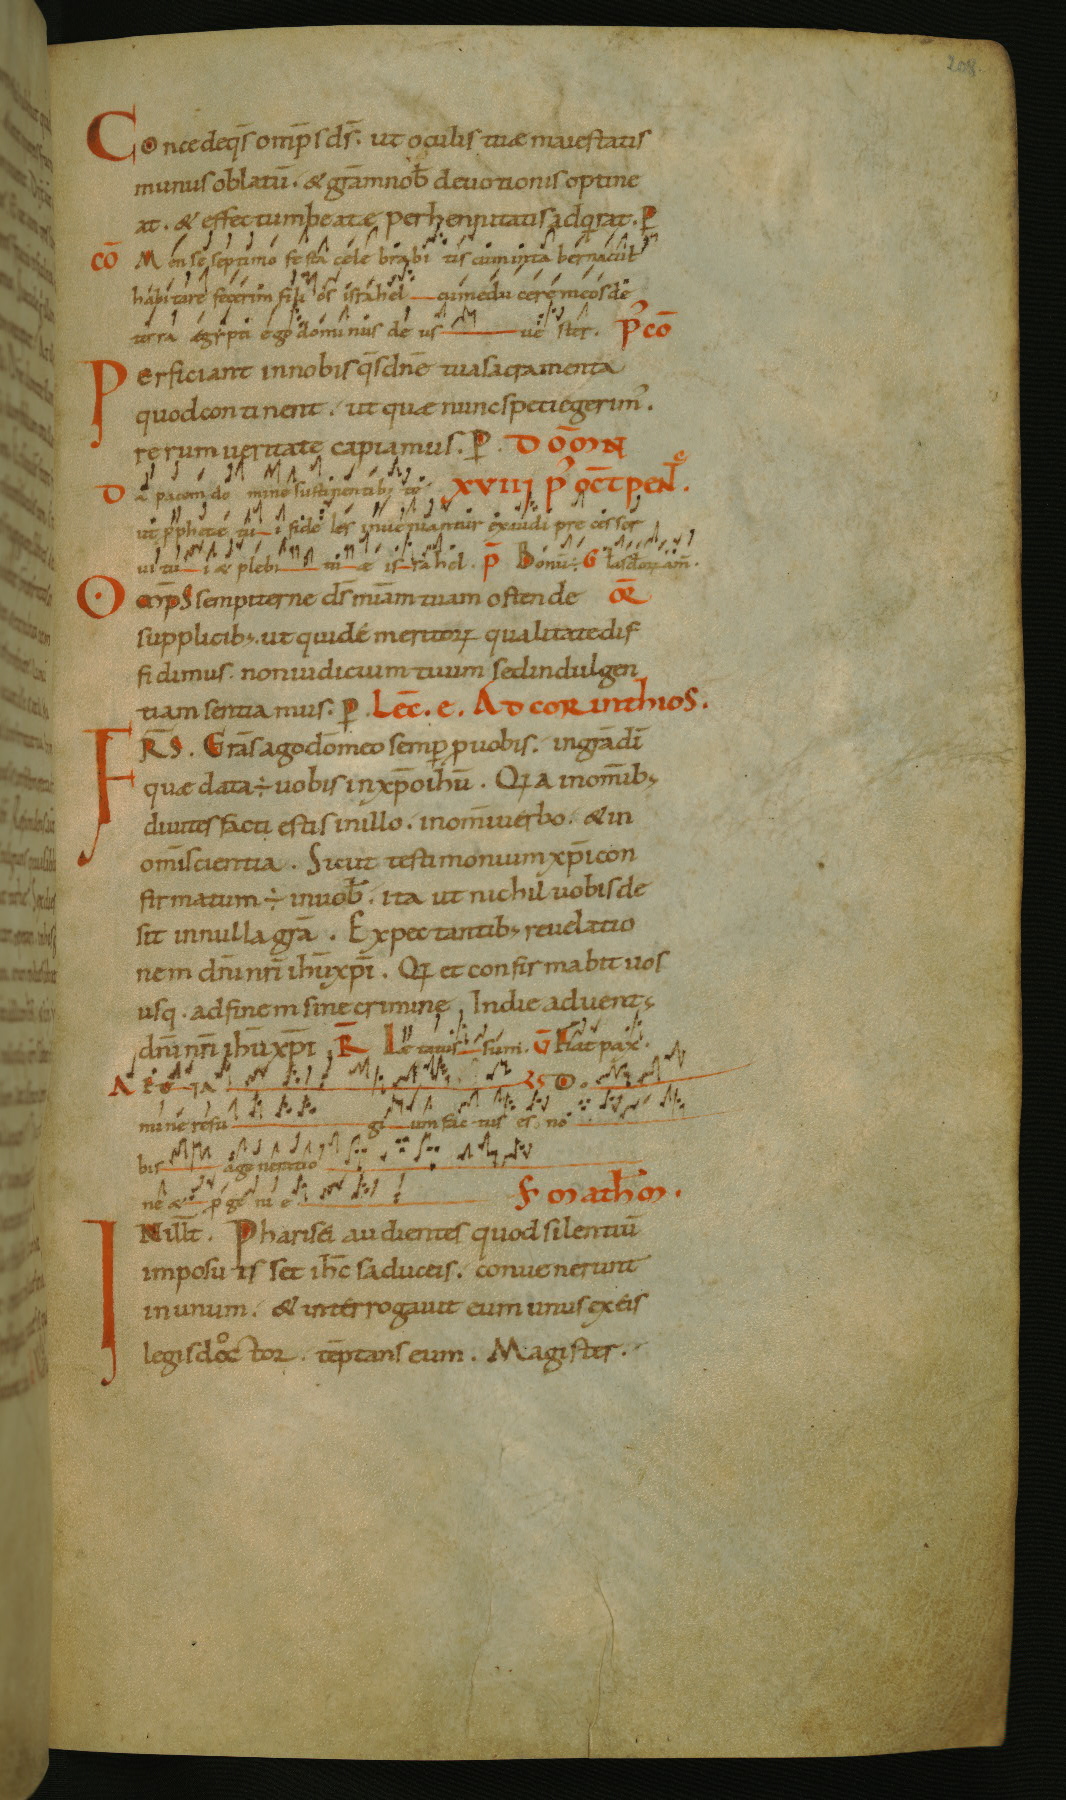 208
Concede q̄s omp̄s d̄s. ut oculis tuæ maiestatis
munus oblatū. & grām nob̄ deuotionis optine
at. & effectum beatę perhennitatis adq̄rat. P̱
CŌ Mense septimo festa celebrabitis cum in tabernaculis
habitare fecerim filios israhel cum educerem eos de
terra egypti ego dominus deus uester. P̄ CŌ
Perficiant in nobis q̄s dn̄e tua sacramenta
quod continent. ut quæ nunc spetie gerim᾽.
rerum ueritate capiamus. P̱. DOM̄N
Da pacem domine sustinentib; te XVIII P᾽ OCT̄ PEN̄T.
ut p̄phetę tui fideles inueniantur exaudi preces ser
ui tui & plebi tuæ israhel. P̄ Bonū ÷ G Laudōr iam̄.
Omp̄s sempiterne d̄s miām tuam ostende OR̄
supplicib;. ut qui dē meritoꝝ qualitate dif
fidimus. non iudicium tuum sed indulgen
tiam sentiamus. P̱. LEC̄. E. AD CORINTHIOS.
FR̄S. Grās ago dōmeo semp̱ p̱ uobis. in grā dī
quæ data ÷ uobis in xp̄o ihū. Qꝛa in om̄ib;
diuites facti estis in illo. in om̄i uerbo. & in
om̄i scientia. Sicut testimonium xp̄i con
firmatum ÷ in uob̄. ita ut nichil uobis de
sit in nulla grā. Expectantib; reuelatio
nem dn̄i nr̄i ihū xp̄i. Qꝛ et confirmabit uos
usq. ad finem sine crimine. In die aduent;
dn̄i nr̄i ihū xp̄i. R̄ Lætatus sum. V̄ Fiat pax.
AEUIA
mine refugium factus es no
bis a generatio
ne & p̱genie S MATH̄M.
IN ill̄t. Pharisei audientes quod silentiū
imposuisset ih̄c saduceis. conuenerunt
in unum. & interrogauit eum unus ex eis
legis doctor. tēptans eum. Magister.